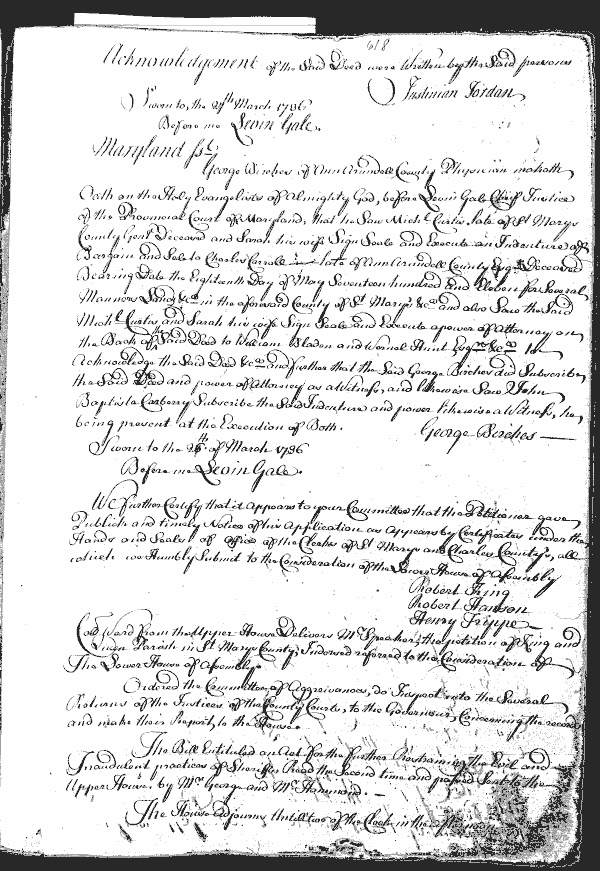 618
Acknowledgement of the Said Deed were Written by the Said persons
Justinian Jordan
Sworn to the 24th March 1736
Before me Levin Gale.
Maryland ss.
George Birches of Ann Arundell County Physician maketh
Oath on the Holy Evangelists of Almighty God, before Levin Gale Chief Justice
of the Provincial Court of Maryland, that he Saw Michl. Curtis late of St Marys
County Gent Deceased and Sarah his wife Sign Seale and Execute an Indenture of
Bargain and Sale to Charles Carroll late of Ann Arundell County Esqr. Deceased
Bearing Date the Eighteenth Day of May Seventeen hundred and Eleven for Several
Mannors Lands &ca in the aforesaid County of St Marys &ca and also Saw the Said
Michl. Curtis and Sarah his wife Sign Seale and Execute a power of Attorney on
the Back of Said Deed to William Bladen and Wornel Hunt Esqrs &ca to
Acknowledge the Said Deed &ca and further that the Said George Birches did Subscribe
the Said Deed and power of Attorney as a Witness, and likewise Saw John
Baptista Carberry Subscribe the Said Indenture and power likewise a Witness, he
being present at the Execution of Both.
George Birches
Sworn to the of March 1736
Before me Levin Gale.
We further Certify that it appears to your Committee that the Petitioner gave
Publick and timely Notice of his Application as Appears by Certificates under the
Hands and Seales of Office of the Clerks of St Marys and Charles Countys, all
which we Humbly Submit to the Consideration of the Lower House of Assembly
Robert King
Robert Hanson
Henry Trippe
Col Ward from the Upper House Delivers Mr Speaker, the petition of King and
Queen Parish in St Marys County, Indorsed referred to the Consideration of
The Lower House of Assembly
Ordered the Committee of Aggreivances, do Inspect into the Several
Returns of the Justices of the County Courts, to the Governour, Concerning the records
and make their Report, to the House.
The Bill Entituled an Act for the further Restraining the Evil and
Fraudulent practices of Sheriffs Read the Second time and passed Sent to the
Upper House by Mr George and Mr Hammond.
The House Adjourns Untill two of the Clock in the Afternoon